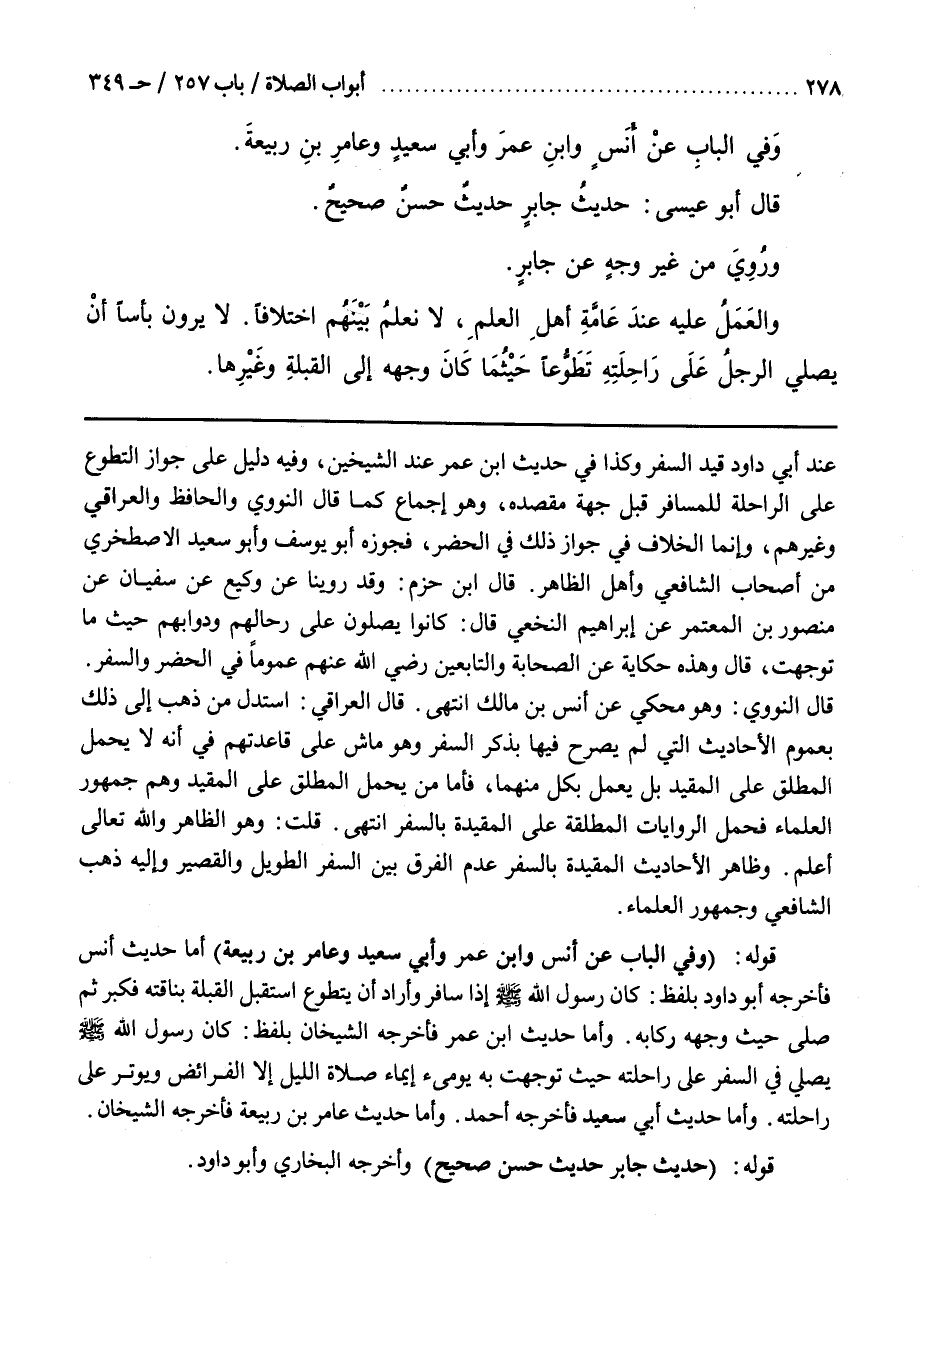 ٢٧٨ ........................................ أبواب الصلاة / باب ٢٥٧ / حـ ٣٤٩
وَفي البابِ عنْ أَنَسٍ وابنِ عمرَ وأبي سعيدٍ وعامرِ بنِ ربيعةَ.
قال أبو عيسى: حديثُ جابرٍ حديثٌ حسنٌ صحيحٌ.
ورُوِيَ من غير وجهٍ عن جابرٍ.
والعَمَلُ عليه عندَ عَامَّةِ أهلِ العلمِ، لا نعلمُ بَيْنَهُم اختلافاً. لا يرون بأساً أنْ
يصلي الرجلُ عَلَى رَاحِلَتِهِ تَطَوُّعاً حَيْثُمَا كَانَ وجهه إلى القبلةِ وغَيْرِها.
عند أبي داود قيد السفر وكذا في حديث ابن عمر عند الشيخين، وفيه دليل على جواز التطوع
على الراحلة للمسافر قبل جهة مقصده، وهو إجماع كمـا قال النووي والحافظ والعراقي
وغيرهم، وإنما الخلاف في جواز ذلك في الحضر، فجوزه أبو يوسف وأبو سعيد الاصطخري
من أصحاب الشافعي وأهل الظاهر. قال ابن حزم: وقد روينا عن وكيع عن سفيـان عن
منصور بن المعتمر عن إبراهيم النخعي قال: كانوا يصلون على رحالهم ودوابهم حيث ما
توجهت، قال وهذه حكاية عن الصحابة والتابعين رضي الله عنهم عموماً في الحضر والسفر.
قال النووي: وهو محكي عن أنس بن مالك انتهى. قال العراقي: استدل من ذهب إلى ذلك
بعموم الأحاديث التي لم يصرح فيها بذكر السفر وهو ماش على قاعدتهم في أنه لا يحمل
المطلق على المقيد بل يعمل بكل منهما، فأما من يحمل المطلق على المقيد وهم جمهور
العلماء فحمل الروايات المطلقة على المقيدة بالسفر انتهى. قلت: وهو الظاهر والله تعالى
أعلم. وظاهر الأحاديث المقيدة بالسفر عدم الفرق بين السفر الطويل والقصير وإليه ذهب
الشافعي وجمهور العلماء.
قوله: (وفي الباب عن أنس وابن عمر وأبي سعيد وعامر بن ربيعة) أما حديث أنس
فأخرجه أبو داود بلفظ: كان رسول الله ﷺ إذا سافر وأراد أن يتطوع استقبل القبلة بناقته فكبر ثم
صلى حيث وجهه ركابه. وأما حديث ابن عمر فأخرجه الشيخان بلفظ: كان رسول الله ﷺ
يصلي في السفر على راحلته حيث توجهت به يومىء إيماء صلاة الليل إلا الفرائض ويوتر على
راحلته. وأما حديث أبي سعيد فأخرجه أحمد. وأما حديث عامر بن ربيعة فأخرجه الشيخان.
قوله: (حديث جابر حديث حسن صحيح) وأخرجه البخاري وأبو داود.